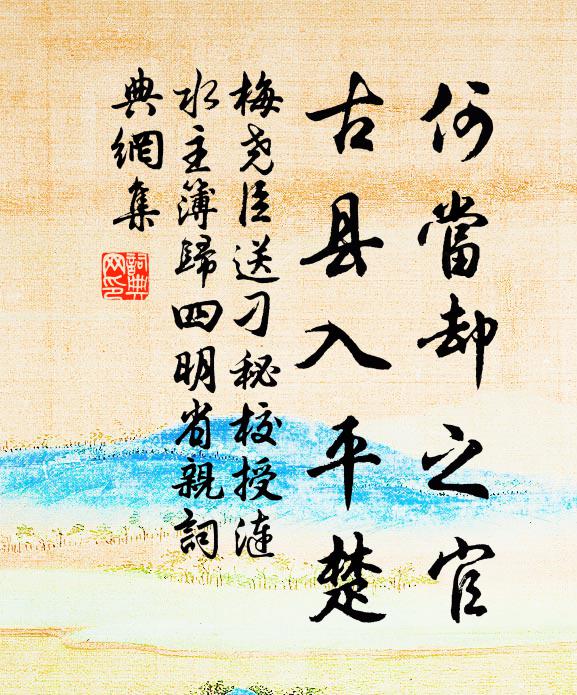 何當却之官
古县入平楚
梅堯臣送刁秘校授漣
水主簿歸四明省親詞
典網集
詞典網印